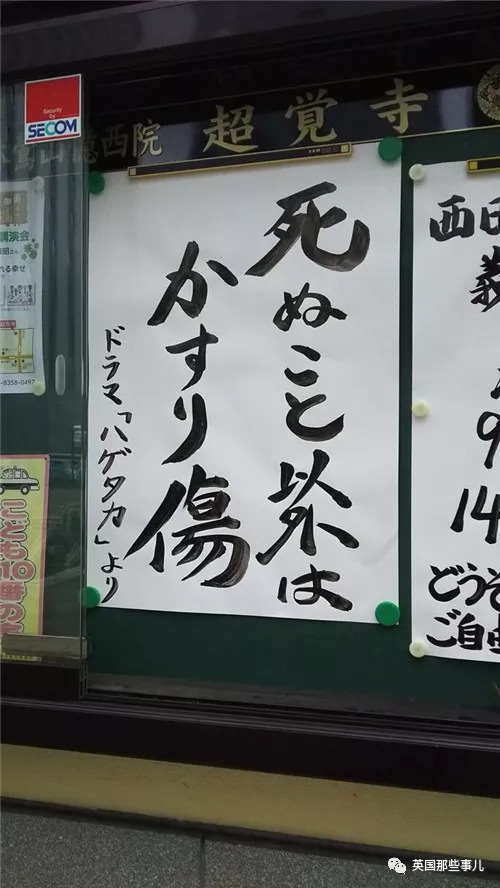 Security by
SECOM
徳西院
超覚寺
死ぬこと以外は
かすり傷
ドラマ「ハゲタカ」より
講演会
れる幸せ
8358-0497
こども10番の
西田
義
9
14
どうぞ
ご自由
英国那些事儿